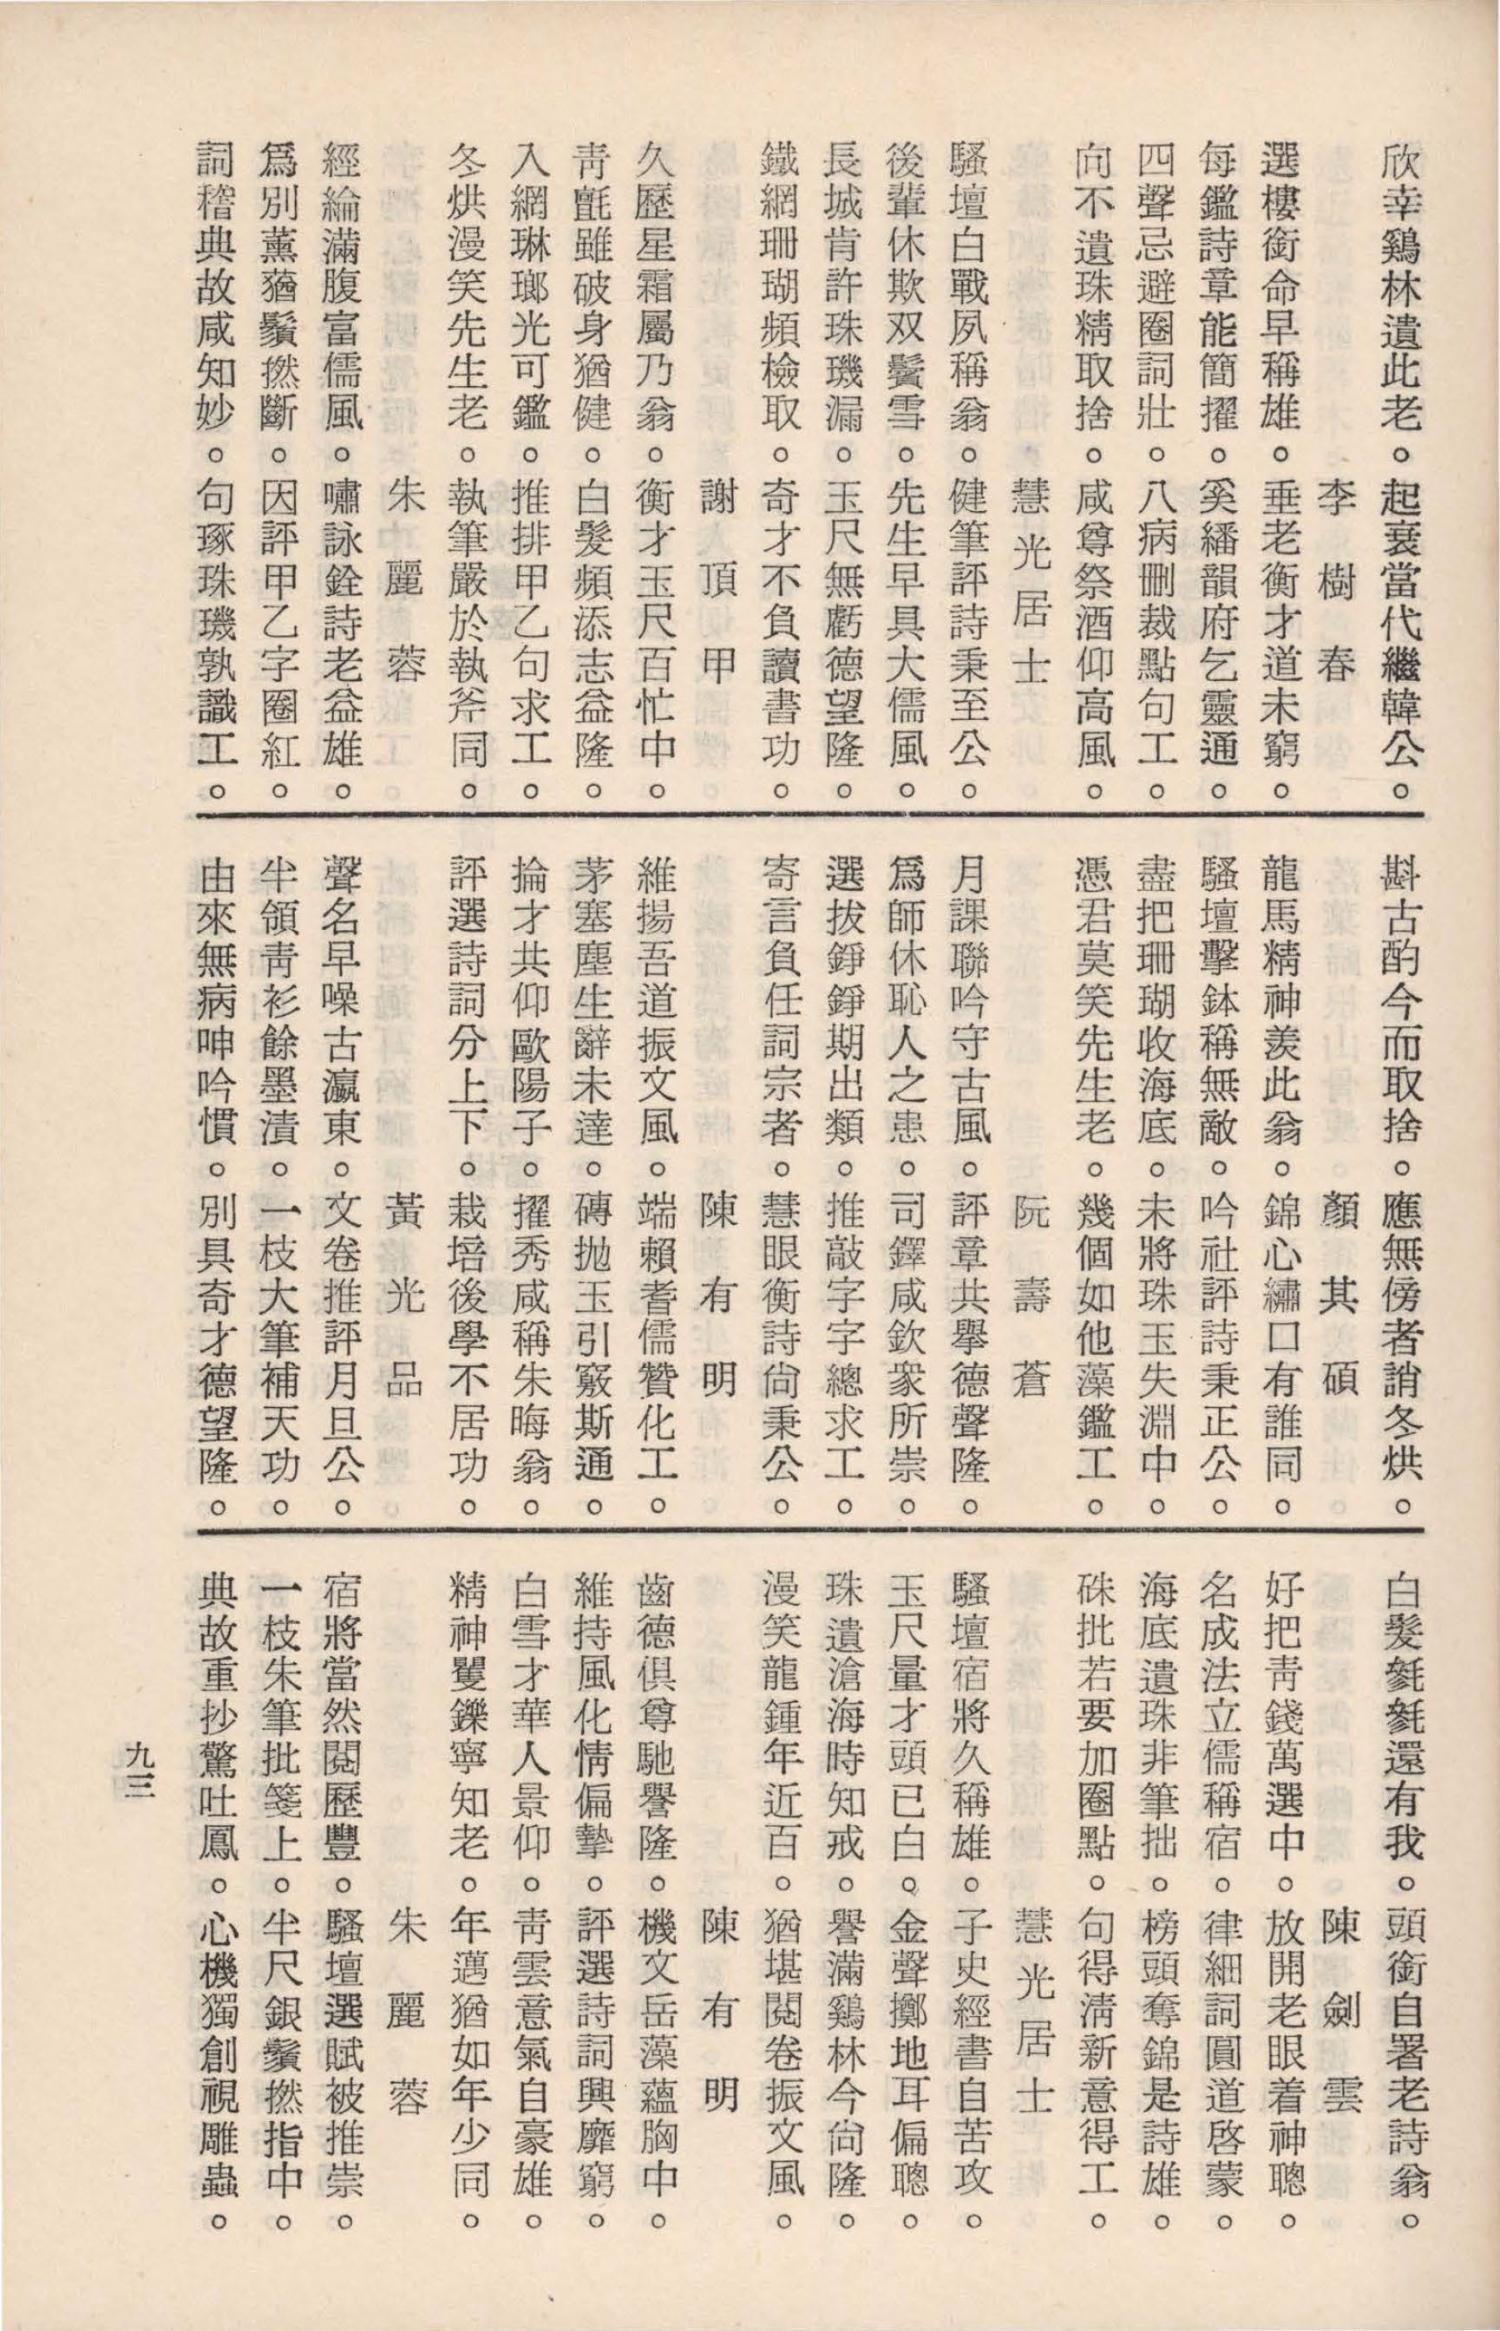 欣幸鷄林遺此老。起衰當代繼韓公。
李樹春
選樓銜命早稱雄。垂老衡才道未窮。
每鑑詩章能簡擢。奚繙韻府乞靈通。
四聲忌避圈詞壯。八病刪裁點句工。
向不遺珠精取捨。咸尊祭酒仰高風。
慧光居士
騷壇白戰夙稱翁。健筆評詩秉至公。
後輩休欺双鬢雪。先生早具大儒風。
長城肯許珠璣漏。玉尺無虧德望隆。
鐵網珊瑚頻檢取。奇才不負讀書功。
謝頂甲
久歷星霜屬乃翁。衡才玉尺百忙中。
靑氈雖破身猶健。白髮頻添志益隆。
入網琳瑯光可鑑。推排甲乙句求工。
冬烘漫笑先生老。執筆嚴於執斧同。
朱麗蓉
經綸滿腹富儒風。嘯詠銓詩老益雄。
爲別薰蕕鬚撚斷。因評甲乙字圈紅。
詞稽典故咸知妙。句琢珠璣孰識工。
斟古酌今而取捨。應無傍者誚冬烘。
顏其碩
龍馬精神羨此翁。錦心繡口有誰同。
騷壇擊鉢稱無敵。吟社評詩秉正公。
盡把珊瑚收海底。未將珠玉失淵中。
憑君莫笑先生老。幾個如他藻鑑工。
阮壽蒼
月課聯吟守古風。評章共舉德聲隆。
爲師休恥人之患。司鐸咸欽衆所崇。
選拔錚錚期出類。推敲字字總求工。
寄言負任詞宗者。慧眼衡詩尙秉公。
陳有明
維揚吾道振文風。端賴耆儒贊化工。
茅塞塵生辭未達。磚拋玉引竅斯通。
掄才共仰歐陽子。擢秀咸稱朱晦翁。
評選詩詞分上下。栽培後學不居功。
黃光品
聲名早噪古瀛東。文卷推評月旦公。
半領靑衫餘墨漬。一枝大筆補天功。
由來無病呻吟慣。別具奇才德望隆。
白髮毿毿還有我。頭銜自署老詩翁。
陳劍雲
好把靑錢萬選中。放開老眼着神聰。
名成法立儒稱宿。律細詞圓道啓蒙。
海底遺珠非筆拙。榜頭奪錦是詩雄。
硃批若要加圈點。句得淸新意得工。
慧光居士
騷壇宿將久稱雄。子史經書自苦攻。
玉尺量才頭已白。金聲擲地耳偏聰。
珠遺滄海時知戒。譽滿鷄林今尙隆。
漫笑龍鍾年近百。猶堪閱卷振文風。
陳有明
齒德俱尊馳譽隆。機文岳藻蘊胸中。
維持風化情偏摯。評選詩詞興靡窮。
白雪才華人景仰。靑雲意氣自豪雄。
精神矍鑠寧知老。年邁猶如年少同。
朱麗蓉
宿將當然閱歷豐。騷壇選賦被推崇。
一枝朱筆批箋上。半尺銀鬚撚指中。
典故重抄驚吐鳳。心機獨創視雕蟲。
九三